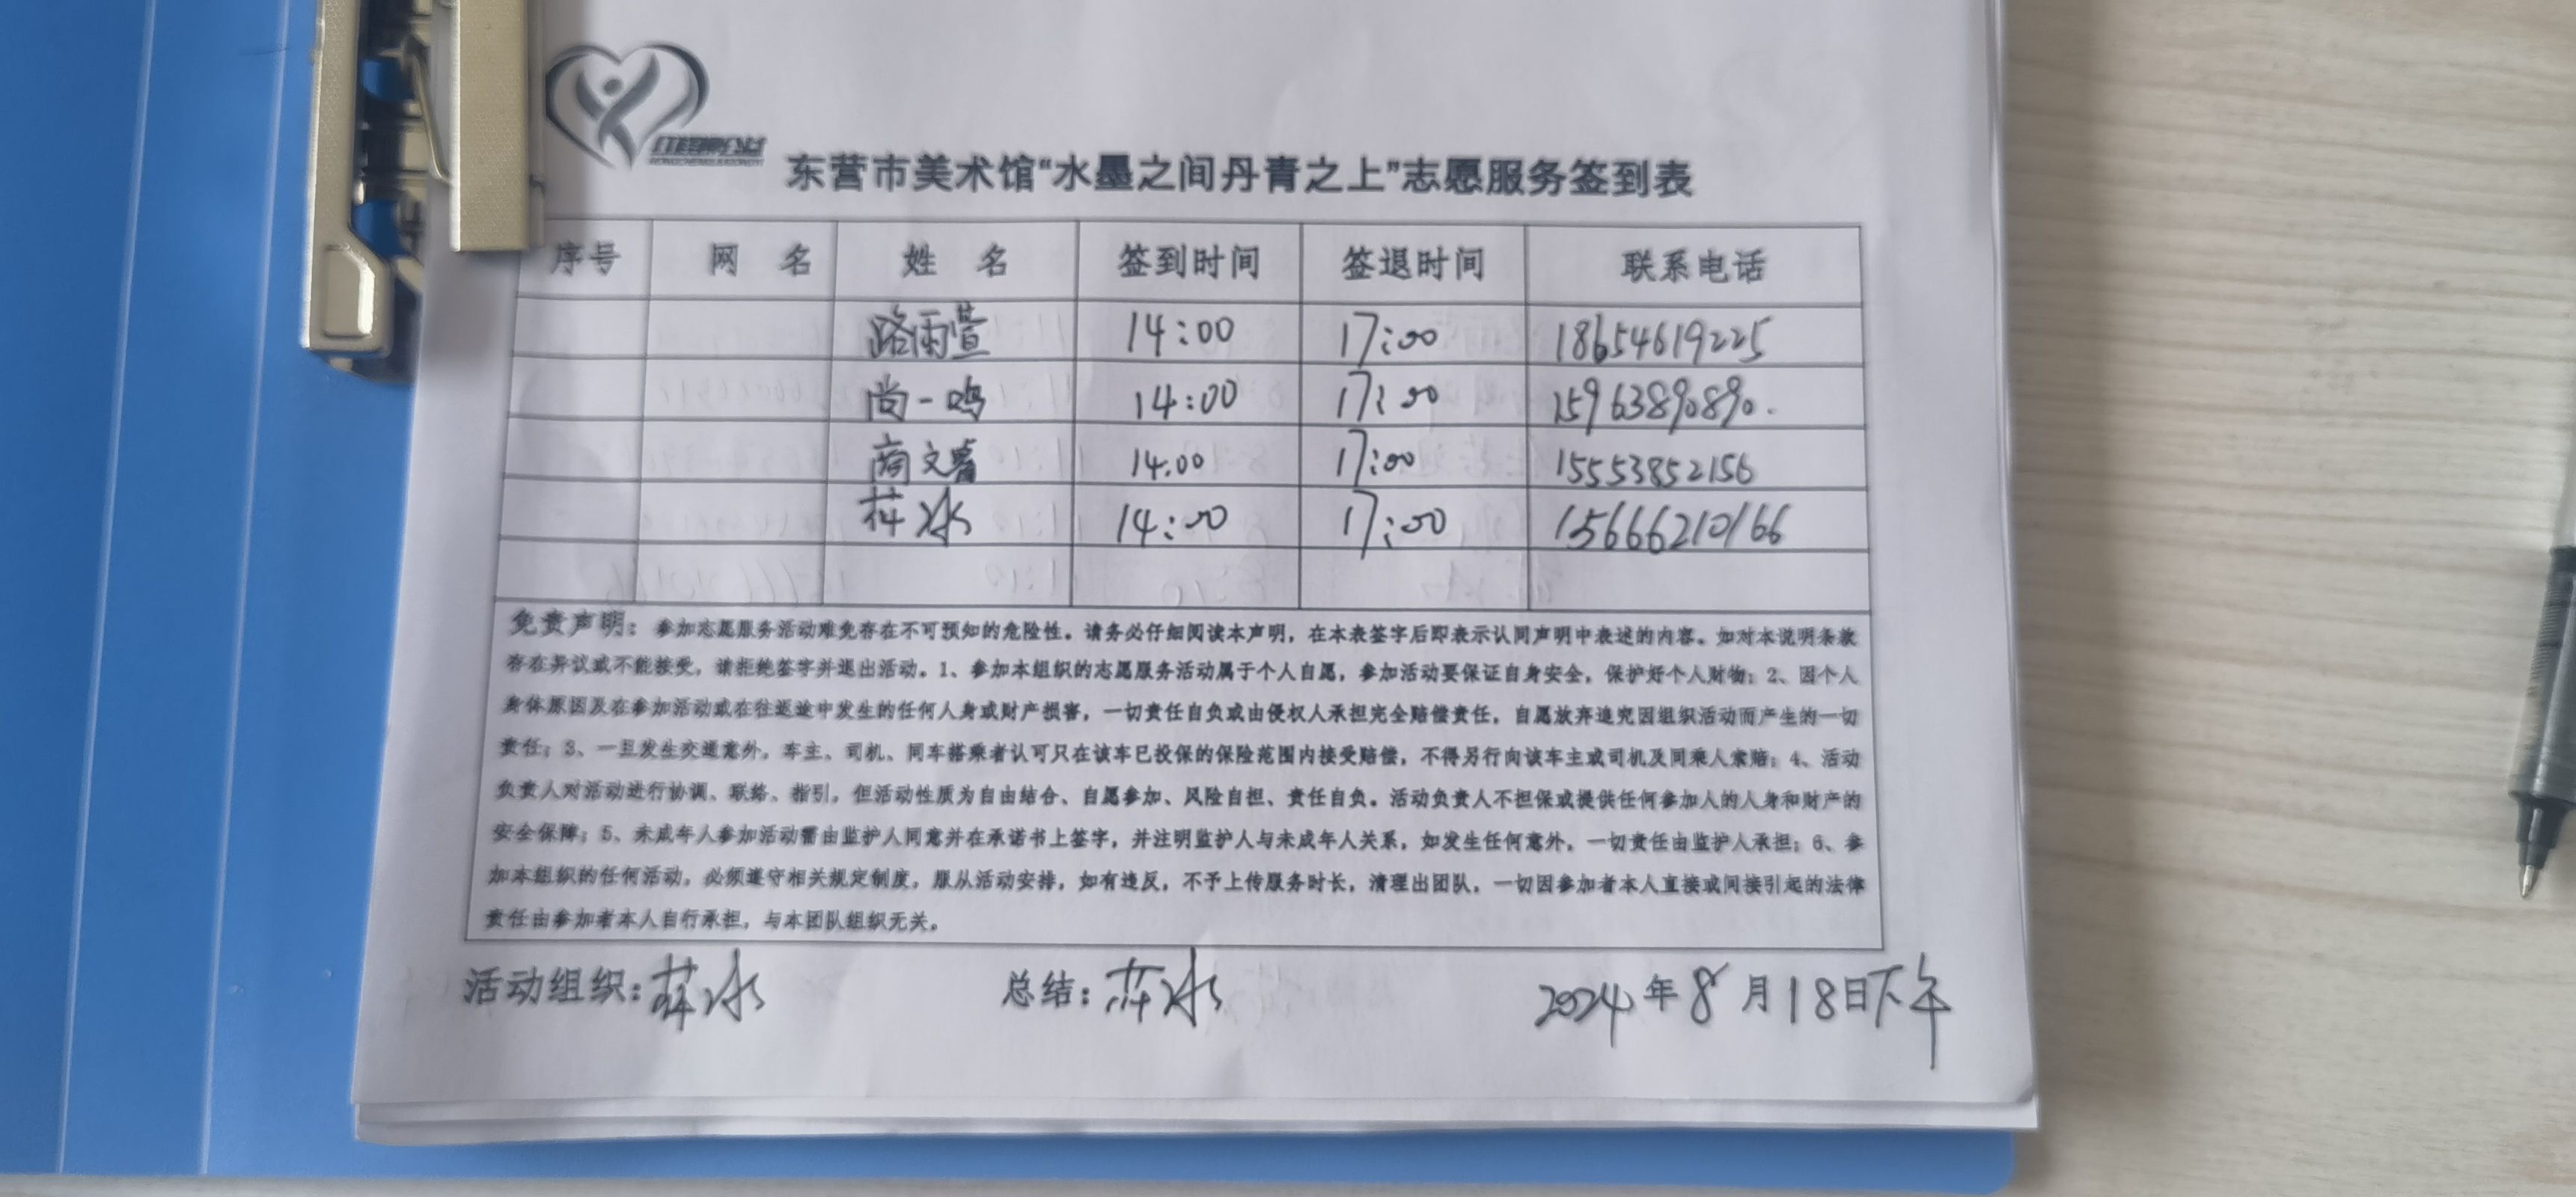 东营市美术馆“水墨之间丹青之上”志愿服务签到表
序号 网 名 姓 名 签到时间 签退时间 联系电话
路雨萱 14:00 17:00 18654619225
尚一鸣 14:00 17:00 15963890890.
商文睿 14.00 17:00 15553852156
苏冰 14:00 17:00 15666210166
免责声明：参加志愿服务活动难免存在不可预知的危险性。请务必仔细阅读本声明，在本表签字后即表示认同声明中表述的内容。如对本说明条款
存在异议或不能接受，请拒绝签字并退出活动。1、参加本组织的志愿服务活动属于个人自愿，参加活动要保证自身安全，保护好个人财物；2、因个人
身体原因及在参加活动或在往返途中发生的任何人身或财产损害，一切责任自负或由侵权人承担完全赔偿责任，自愿放弃追究因组织活动而产生的一切
责任；3、一旦发生交通意外，车主、司机、同车搭乘者认可只在该车已投保的保险范围内接受赔偿，不得另行向该车主或司机及同乘人索赔；4、活动
负责人对活动进行协调、联络、指引，但活动性质为自由结合、自愿参加、风险自担、责任自负。活动负责人不担保或提供任何参加人的人身和财产的
安全保障；5、未成年人参加活动需由监护人同意并在承诺书上签字，并注明监护人与未成年人关系，如发生任何意外，一切责任由监护人承担；6、参
加本组织的任何活动，必须遵守相关规定制度，服从活动安排，如有违反，不予上传服务时长，清理出团队，一切因参加者本人直接或间接引起的法律
责任由参加者本人自行承担，与本团队组织无关。
活动组织：苏冰 总结：苏冰 2024年8月18日下午